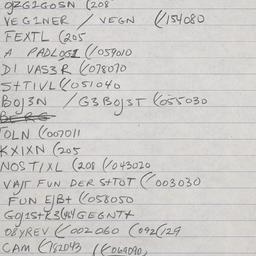 VEGINER / VEGN (/154080
FEXTL (205
A PADLOGI (/059010
DI VAS3R (/078070
S+TIVL (/051040
BOJ3N / G3BOJ3T (/055030
TOLN (/007011
KXIXN (205
NOSTIXL (208 (/043020
VAJT FUN DER S+TOT (/003030
FUN EJB+ (/058050
GEGNT+
OBYREV (/002060 (092(129
CAM (/182043 (/060090